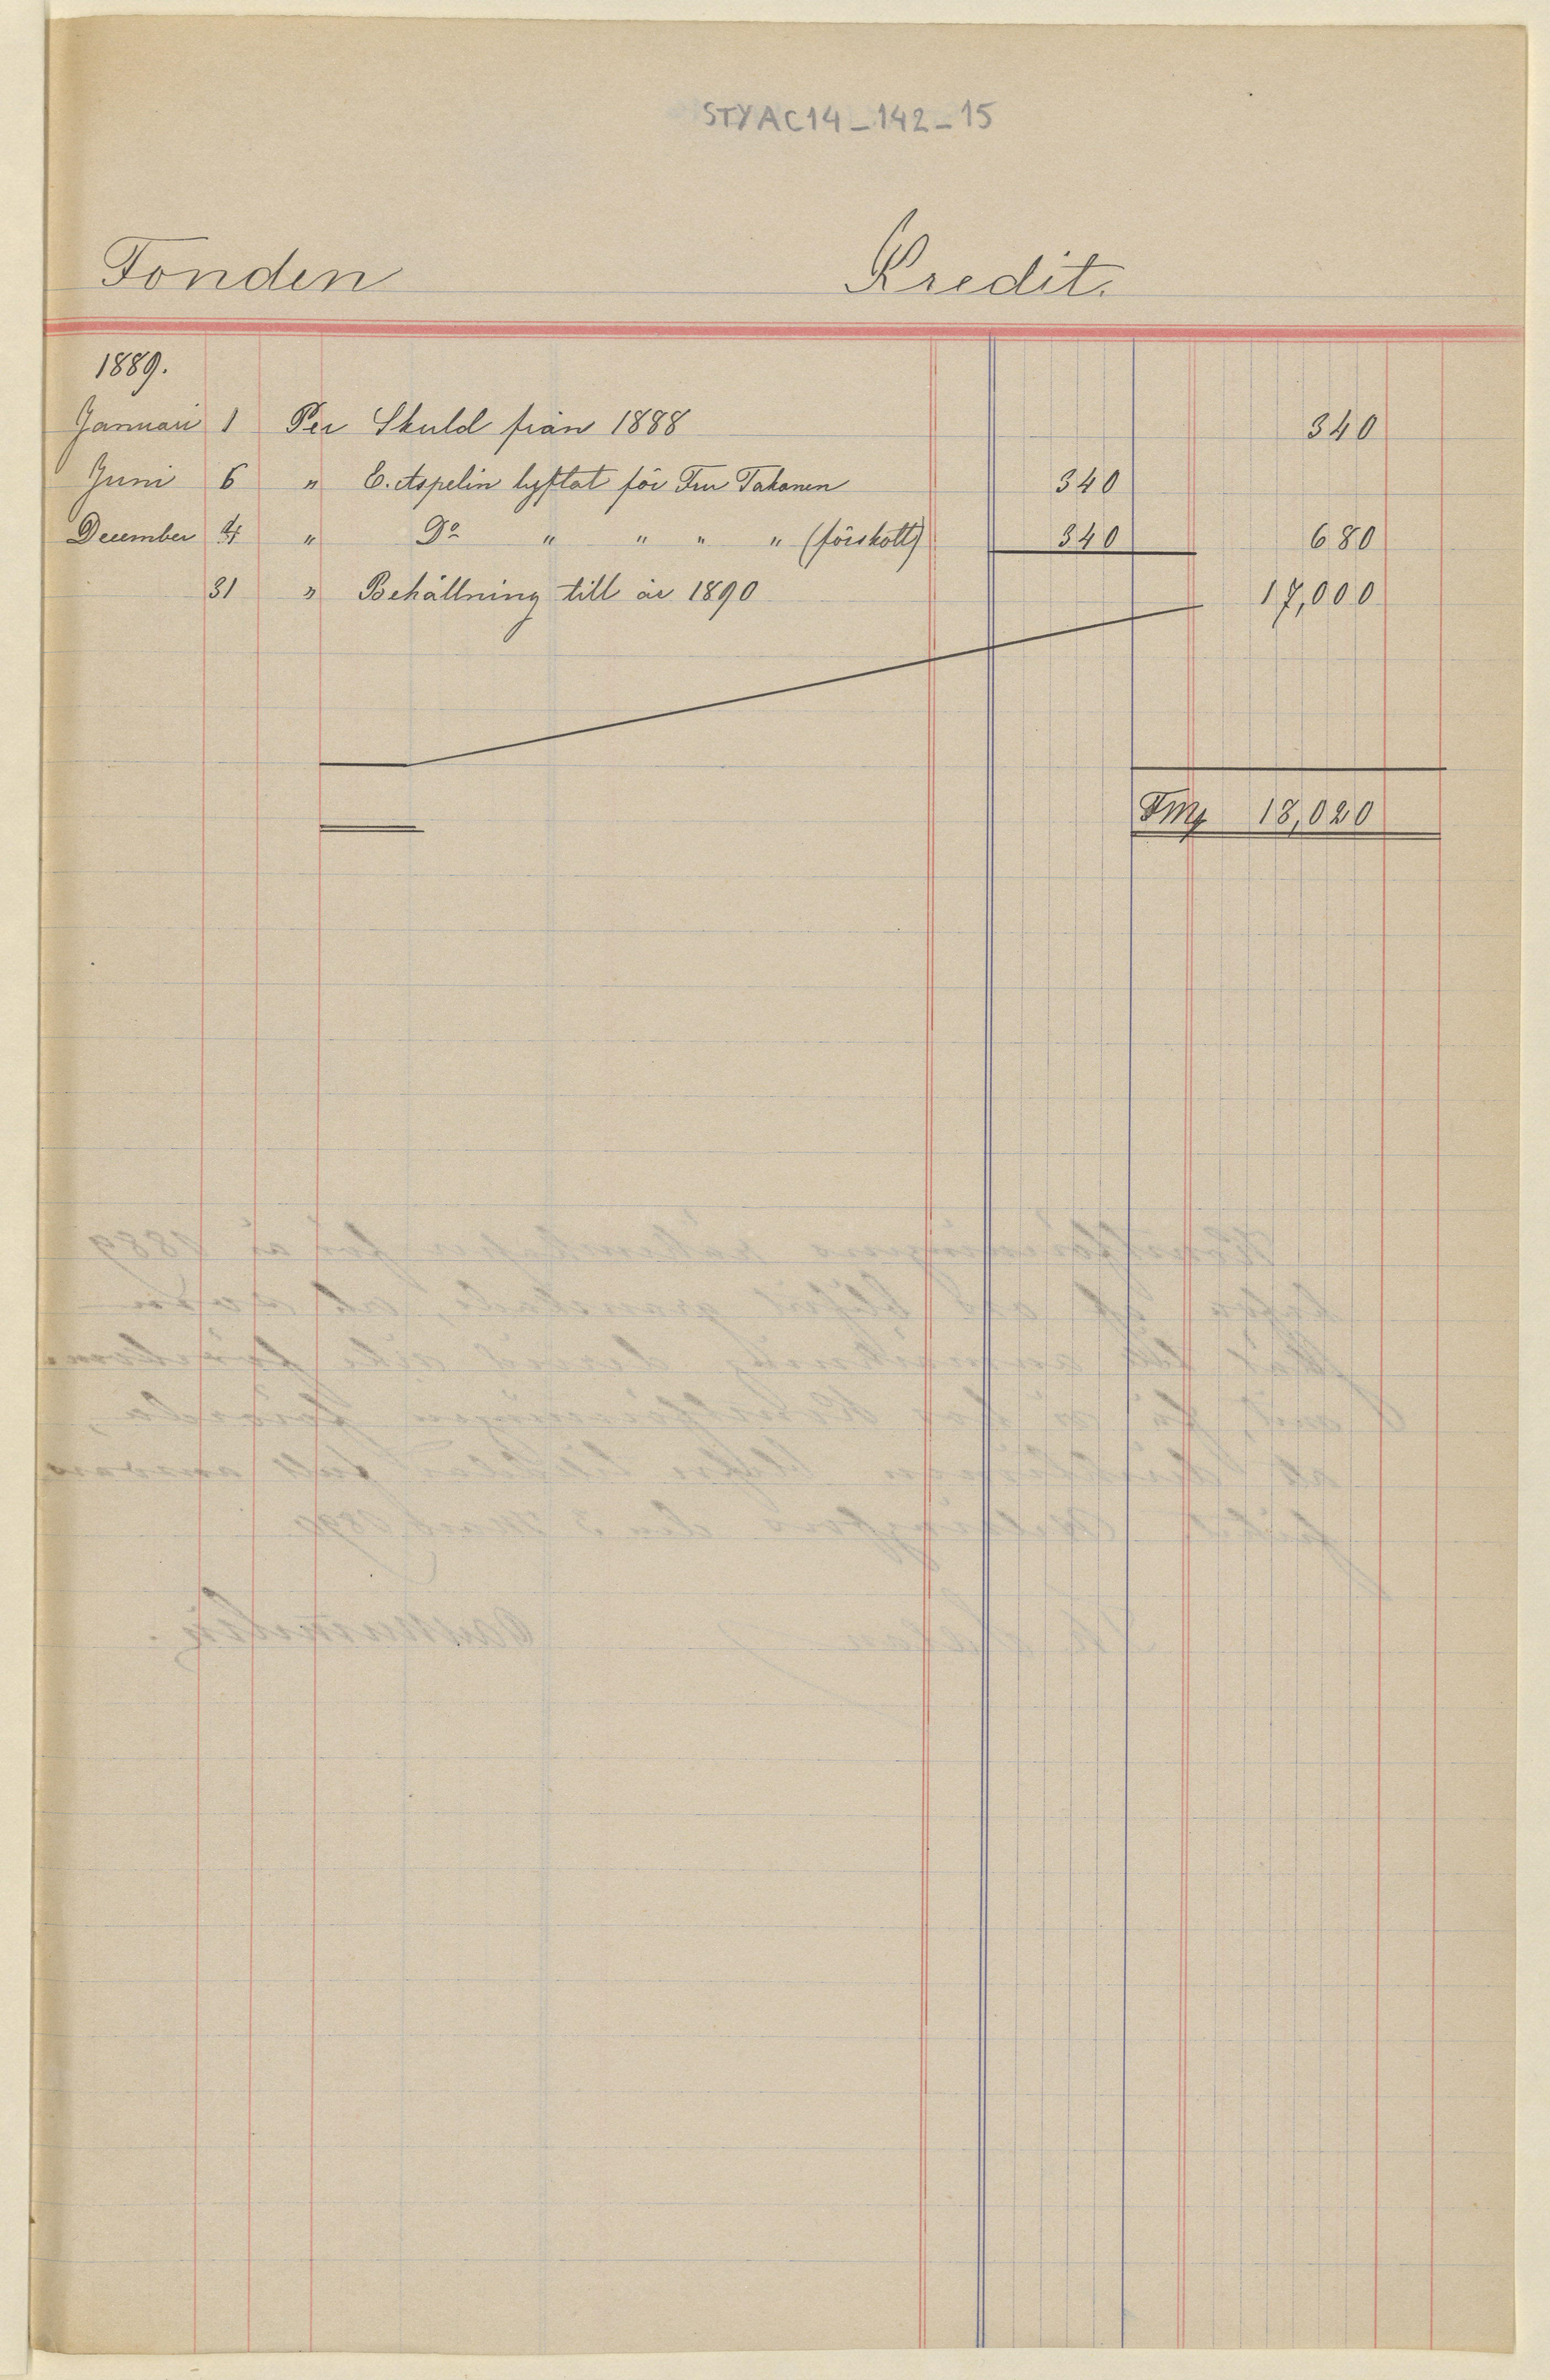 STYAC14_142_15
Fonden Kredit.
1889.
Januari 1 Per Skuld från 1888 340
Juni 6 " E. Aspelin lyftat för Fru Takanen 340
December 4 " Do " " " " (förskott) 340 680
31 " Behållning till år 1890 17,000
Fmk 18,020